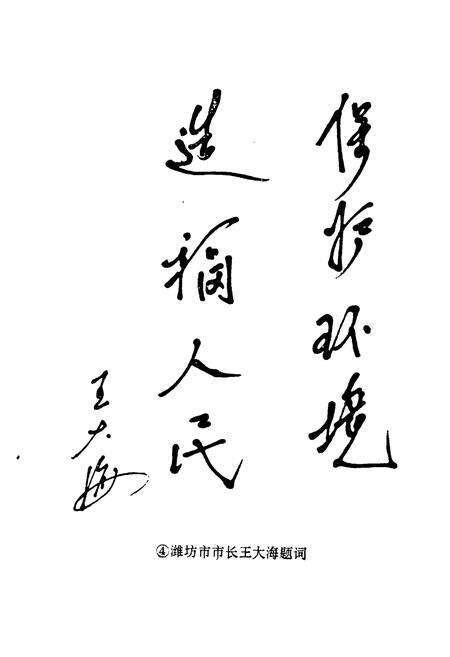 保护环境
造福人民
王大海
④潍坊市市长王大海题词